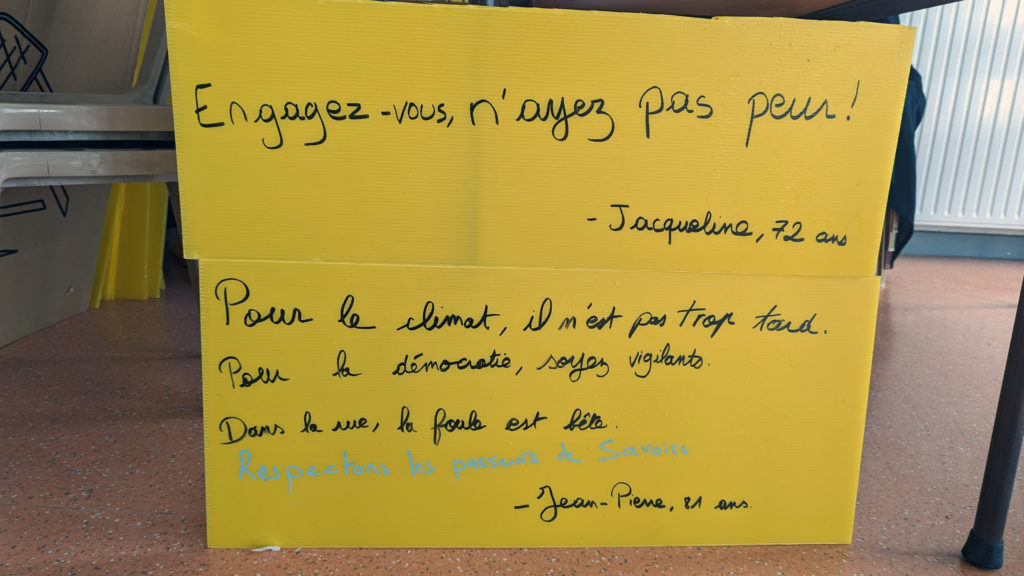 Engagez-vous, n'ayez pas peur!
- Jacqueline, 72 ans
Pour le climat, il n'est pas trop tard.
Pour la démocratie, soyez vigilants.
Dans la rue, la foule est bête.
Respectons les passeurs de Savoirs
- Jean-Pierre, 81 ans.